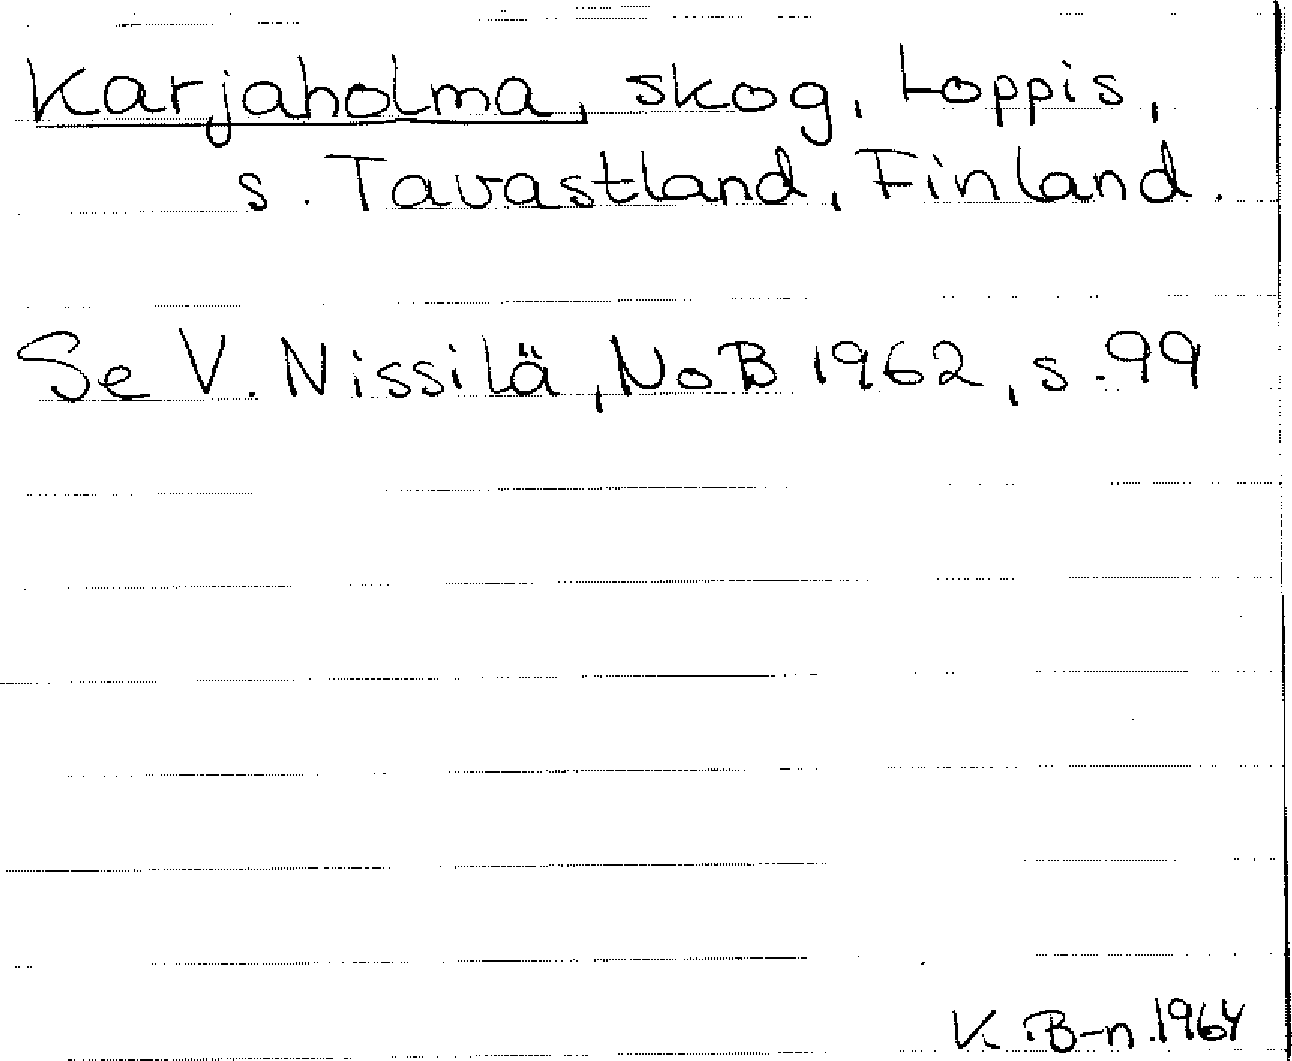 Karjaholma, skog, Loppis,
s. Tavastland, Finland.
Se V. Nissilä, NoB 1962, s. 99
K. B-n. 1964